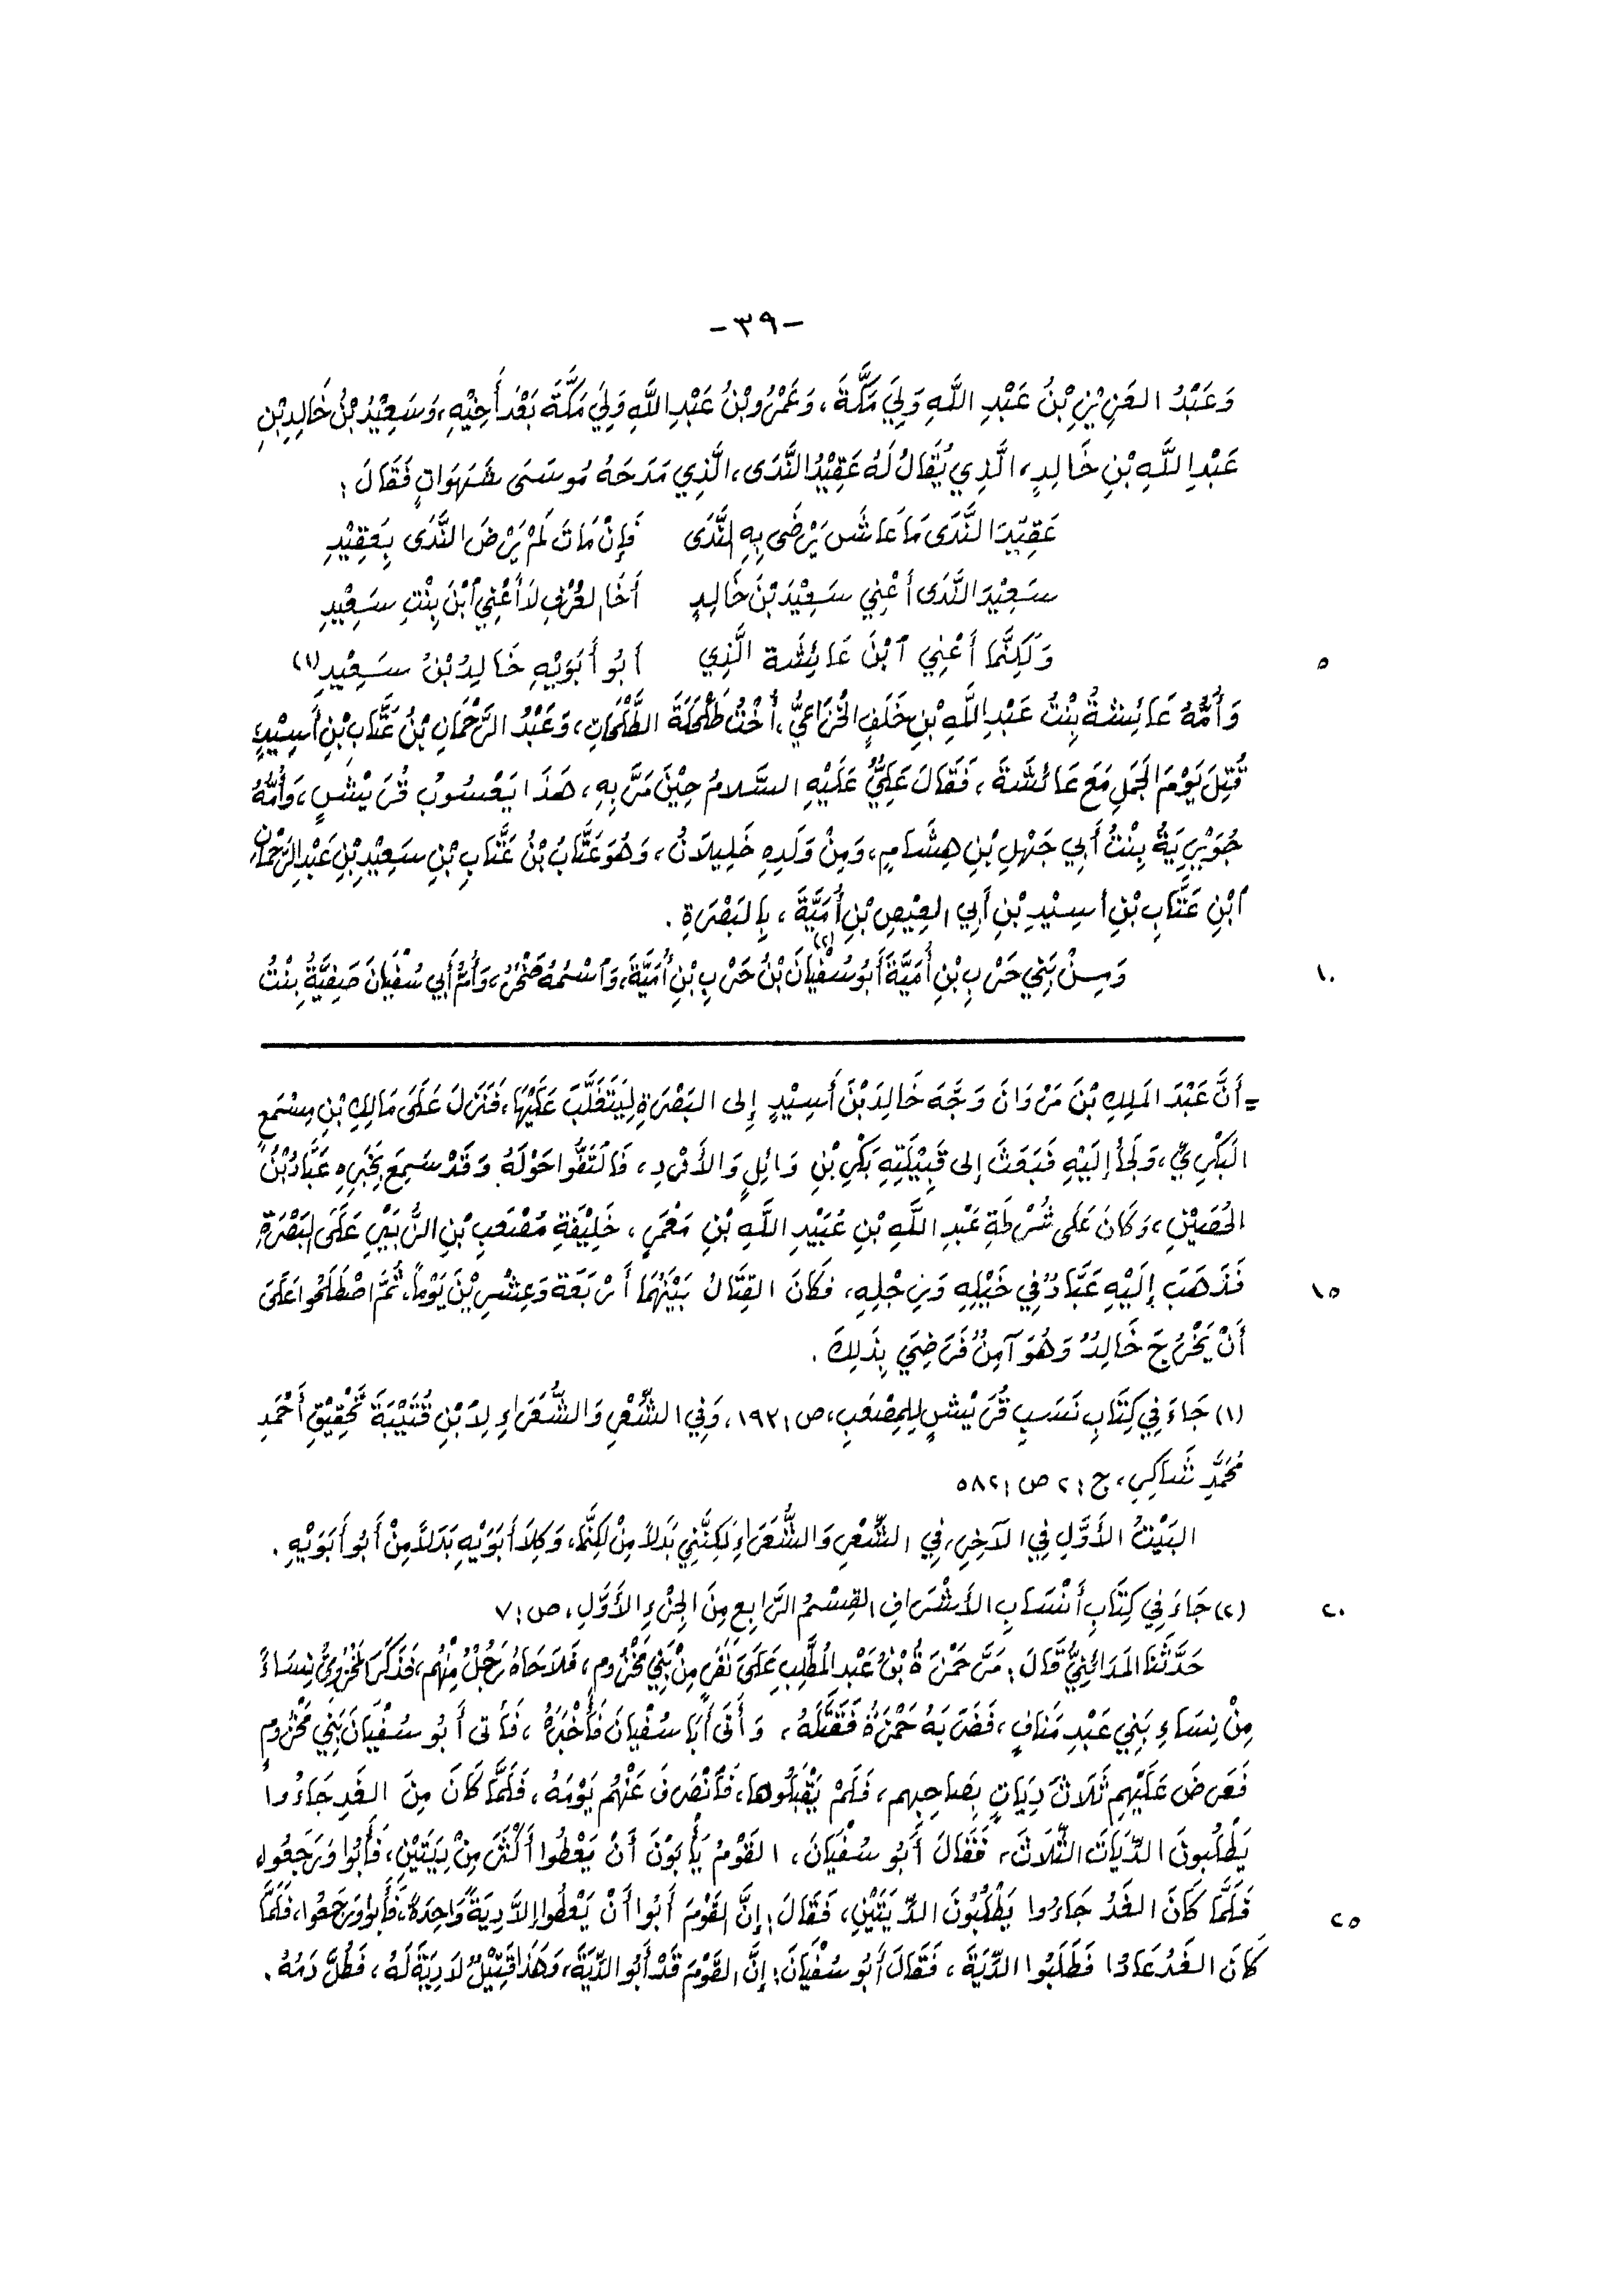 -٣٩-
وَعَبْدُ العَزِيْزِ بْنُ عَبْدِ اللَّهِ وَلِيَ مَكَّةَ، وَعَمْرُو بْنُ عَبْدِ اللَّهِ وَلِيَ مَكَّةَ بَعْدَ أَخِيْهِ، وَسَعِيْدُ بْنُ خَالِدِ بْنِ
عَبْدِ اللَّهِ بْنِ خَالِدٍ، الَّذِي يُقَالُ لَهُ عَقِيْدُ النَّدَى، الَّذِي مَدَحَهُ مُوسَى شَهَوَاتٍ فَقَالَ:
عَقِيْدَ النَّدَى مَا عَاشَ يَرْضَى بِهِ النَّدَى فَإِنْ مَاتَ لَمْ يَرْضَ النَّدَى بِعَقِيْدِ
سَعِيْدَ النَّدَى أَعْنِي سَعِيْدَ بْنَ خَالِدٍ أَخَا العُرْفِ لاَ أَعْنِي ٱبْنَ بِنْتِ سَعِيْدِ
٥ وَلَكِنَّمَا أَعْنِي ٱبْنَ عَائِشَةَ الَّذِي أَبُو أَبَوَيْهِ خَالِدُ بْنُ سَعِيْدِ (١)
وَأُمُّهُ عَائِشَةُ بِنْتُ عَبْدِ اللَّهِ بْنِ خَلَفٍ الخُزَاعِيُّ، أُخْتُ طَلْحَةَ الطَّلْحَاتِ، وَعَبْدُ الرَّحْمَانِ بْنُ عَتَّابِ بْنِ أَسِيْدٍ
قُتِلَ يَوْمَ الجَمَلِ مَعَ عَائِشَةَ، فَقَالَ عَلِيٌّ عَلَيْهِ السَّلامُ حِيْنَ مَرَّ بِهِ، هَذَا يَعْسُوبُ قُرَيْشٍ، وَأُمُّهُ
جُوَيْرِيَةُ بِنْتُ أَبِي جَهْلِ بْنِ هِشَامٍ، وَمِنْ وَلَدِهِ خَلِيلاَنُ، وَهُوَ عَتَّابُ بْنُ عَتَّابِ بْنِ سَعِيْدِ بْنِ عَبْدِ الرَّحْمَانِ
ٱبْنِ عَتَّابِ بْنِ أَسِيْدِ بْنِ أَبِي العِيْصِ بْنِ أُمَيَّةَ، بِالبَصْرَةِ.
١٠ وَمِنْ بَنِي حَرْبِ بْنِ أُمَيَّةَ أَبُو سُفْيَانَ (٢) بْنُ حَرْبِ بْنِ أُمَيَّةَ، وَٱسْمُهُ صَخْرٌ، وَأُمُّ أَبِي سُفْيَانَ صَفِيَّةُ بِنْتُ
= أَنَّ عَبْدَ المَلِكِ بْنَ مَرْوَانَ وَجَّهَ خَالِدَ بْنَ أَسِيْدٍ إِلى البَصْرَةِ لِيَتَغَلَّبَ عَلَيْهَا، فَنَزَلَ عَلَى مَالِكِ بْنِ مِسْمَعٍ
البَكْرِيِّ، وَلَجَأَ إِلَيْهِ فَبَعَثَ إِلى قَبِيْلَتِهِ بَكْرِ بْنِ وَائِلٍ وَالأَزْدِ، فَالْتَفُّوا حَوْلَهُ وَقَدْ سَمِعَ بِخَبَرِهِ عَبَّادُ بْنُ
الحُصَيْنِ، وَكَانَ عَلَى شُرْطَةِ عَبْدِ اللَّهِ بْنِ عُبَيْدِ اللَّهِ بْنِ مَعْمَرٍ، خَلِيْفَةِ مُصْعَبِ بْنِ الزُّبَيْرِ عَلَى البَصْرَةِ
١٥ فَذَهَبَ إِلَيْهِ عَبَّادٌ فِي خَيْلِهِ وَرِجْلِهِ، فَكَانَ القِتَالُ بَيْنَهُمَا أَرْبَعَةً وَعِشْرِيْنَ يَوْماً، ثُمَّ اصْطَلَحُوا عَلَى
أَنْ يَخْرُجَ خَالِدٌ وَهُوَ آمِنٌ فَرَضِيَ بِذَلِكَ.
(١) جَاءَ فِي كِتَابِ نَسَبِ قُرَيْشٍ لِلمِصْعَبِ، ص: ١٩٢، وَفِي الشِّعْرِ وَالشُّعَرَاءِ لاِبْنِ قُتَيْبَةَ تَحْقِيْقِ أَحْمَدِ
مُحَمَّدِ شَاكِرٍ، ج: ٢ ص: ٥٨٢
البَيْتُ الأَوَّلِ فِي الآخِرِ، فِي الشِّعْرِ وَالشُّعَرَاءِ لَكِنَّنِي بَدَلاً مِنْ لَكِنَّمَا، وَكِلاَ أَبَوَيْهِ بَدَلاً مِنْ أَبُو أَبَوَيْهِ.
٢٠ (٢) جَاءَ فِي كِتَابِ أَنْسَابِ الأَشْرَافِ القِسْمُ الرَّابِعِ مِنَ الجُزْءِ الأَوَّلِ، ص: ٧
حَدَّثَنَا المَدَائِنِيُّ قَالَ: مَرَّ حَمْزَةُ بْنُ عَبْدِ المُطَّلِبِ عَلَى نَفَرٍ مِنْ بَنِي مَخْزُومٍ، فَلاَحَاهُ رَجُلٌ مِنْهُمْ، فَذَكَرَ المَخْزُومِيُّ نِسَاءً
مِنْ نِسَاءِ بَنِي عَبْدِ مَنَافٍ، فَضَرَبَهُ حَمْزَةُ فَقَتَلَهُ، وَأَتَى أَبَا سُفْيَانَ فَأَخْبَرَهُ، فَأَتى أَبُو سُفْيَانَ بَنِي مَخْزُومٍ
فَعَرَضَ عَلَيْهِم ثَلاَثَ دِيَاتٍ بِصَاحِبِهِم، فَلَمْ يَقْبَلُوهَا، فَٱنْصَرَفَ عَنْهُم يَوْمَهُ، فَلَمَّا كَانَ مِنَ الغَدِ جَاءُوا
يَطْلُبُونَ الدِّيَاتَ الثَّلاَثَ، فَقَالَ أَبُو سُفْيَانَ، القَوْمُ يَأْبَوْنَ أَنْ يَعْطُوا أَكْثَرَ مِنْ دِيَتَيْنِ، فَأَبُوا وَرَجَعُوا،
٢٥ فَلَمَّا كَانَ الغَدُ جَاءُوا يَطْلُبُونَ الدِّيَتَيْنِ، فَقَالَ: إِنَّ القَوْمَ أَبُوا أَنْ يَعْطُوا إِلاَّ دِيَةً وَاحِدَةً، فَأَبُوا وَرَجَعُوا، فَلَمَّا
كَانَ الغَدُ عَادُوا فَطَلَبُوا الدِّيَةَ، فَقَالَ أَبُو سُفْيَانَ: إِنَّ القَوْمَ قَدْ أَبُوا الدِّيَةَ، وَهَذَا قَتِيْلٌ لاَ دِيَةَ لَهُ، فَطُلَّ دَمُهُ.